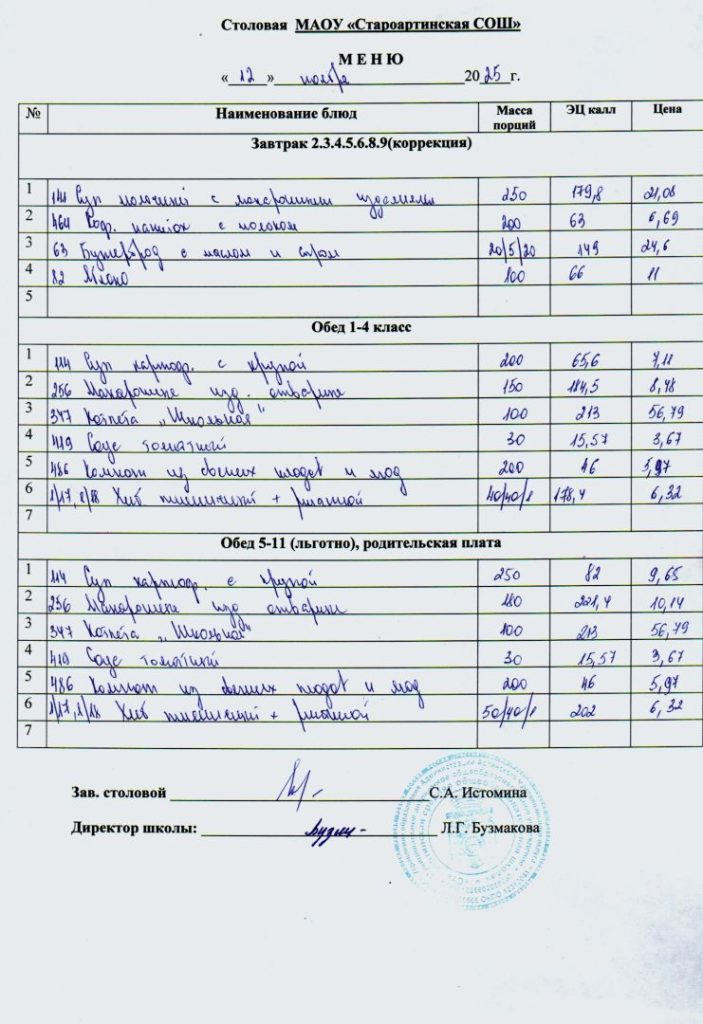 Столовая МАОУ «Староартинская СОШ»
М Е Н Ю
« 12 » ноября 2025 г.
№ Наименование блюд Масса порций ЭЦ калл Цена
Завтрак 2.3.4.5.6.8.9(коррекция)
1 144 Суп молочный с макаронными изделиями 250 179,8 21,08
2 464 Коф. напиток с молоком 200 63 6,69
3 63 Бутерброд с маслом и сыром 20/5/20 149 24,6
4 82 Яблоко 100 66 11
5
Обед 1-4 класс
1 114 Суп картоф. с крупой 200 65,6 7,11
2 256 Макаронные изд. отварные 150 184,5 8,48
3 347 Котлета „Школьная" 100 213 56,79
4 419 Соус томатный 30 15,57 3,67
5 486 Компот из свежих плодов и ягод 200 46 5,97
6 1/17, 1/18 Хлеб пшеничный + ржаной 40/40/1 178,4 6,32
7
Обед 5-11 (льготно), родительская плата
1 114 Суп картоф. с крупой 250 82 9,65
2 256 Макаронные изд отварные 180 221,4 10,14
3 347 Котлета „Школьная" 100 213 56,79
4 419 Соус томатный 30 15,57 3,67
5 486 Компот из свежих плодов и ягод 200 46 5,97
6 1/17, 1/18 Хлеб пшеничный + ржаной 50/40/1 202 6,32
7
Зав. столовой С.А. Истомина
Директор школы: Л.Г. Бузмакова